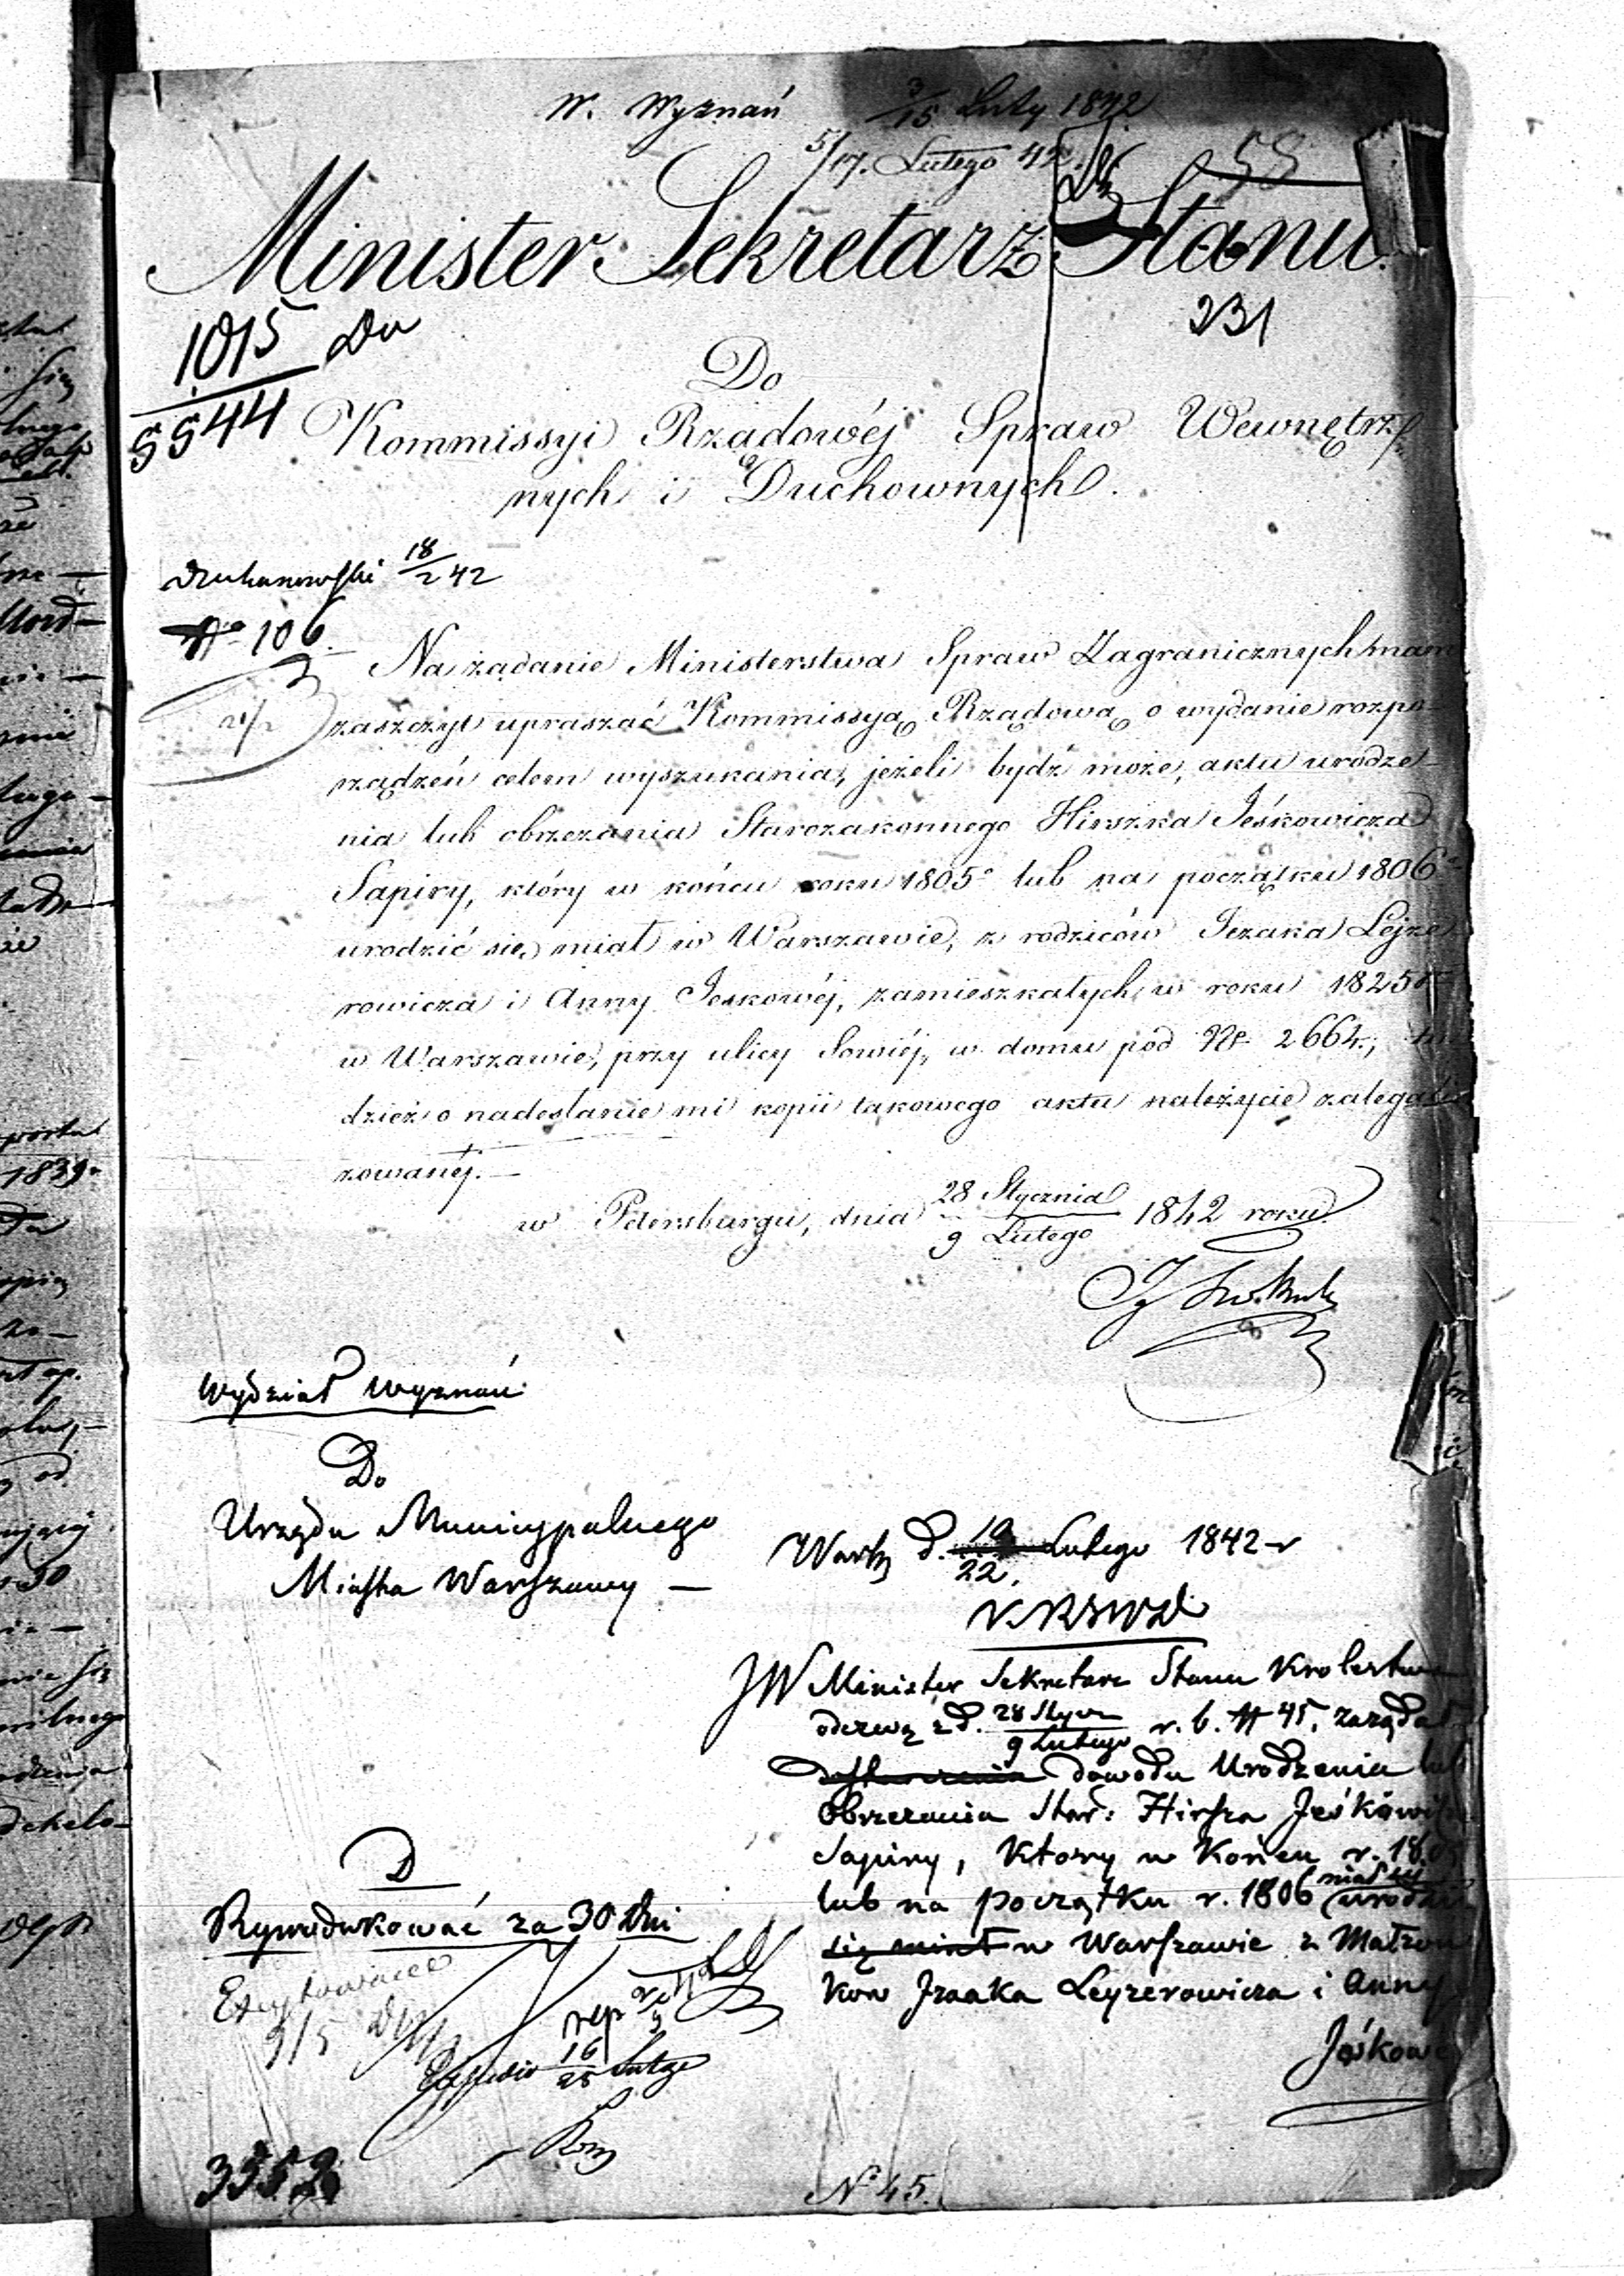 W. Wyznań 3/15 Luty 1842
5/17. Lutego 42.
58
Minister Sekretarz Stanu.
1015 Du
5544
231
Do
Kommissyi Rządowéj Spraw Wewnętrz-
nych i Duchownych.
18/2 42
No 106.
Na żądanie Ministerstwa Spraw Zagranicznych mam
zaszczyt upraszać Kommissyą Rządową o wydanie rozpo-
rządzeń celem wyszukania, jeżeli bydź może, aktu urodze-
nia lub obrzezania Starozakonnego Hirszka Jéskowicza
Sapiry, który w końcu roku 1805o lub na początku 1806o
urodzić się miał w Warszawie, z rodziców Iezaka Lejze-
rowicza i Anny Jeskowéj, zamieszkałych w roku 1825
w Warszawie, przy ulicy Sowiéj, w domu pod No 2664;
dzież o nadesłanie mi kopii takowego aktu należycie zalegali-
zowanéj.—
w Petersburgu, dnia 28 Stycznia / 9 Lutego 1842 roku.
Wydział Wyznań
Do
Urzędu Municypalnego
Miasta Warszawy —
Warsz d. 10/22. Lutego 1842 r
K.R.S.W.D.
JW Minister Sekretarz Stanu Krolestwa
odezwą z d. 28 Stycz / 9 Lutego r. b. N 45. zażądał
dostarczenia dowodu Urodzenia lub
Obrzezania Star: Hirsza Jeśkowicza
Sapiry, ktory w Końcu r. 1805
lub na początku r. 1806 miał się urodzić
się miał w Warszawie z Małżon
kow Izaaka Leyzerowicza i Anny
Jośkow
D
Reprodukować za 30 dni
3/5
16/28 Lutego
3352
No 45.